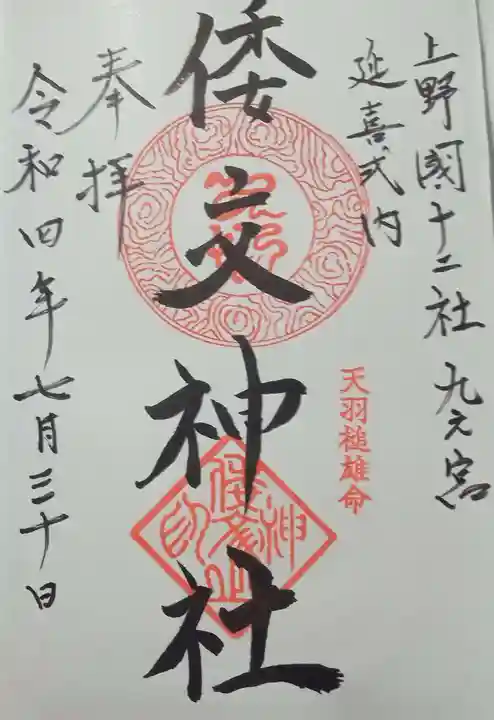 上野國十二社 九之宮
延喜式内
天羽槌雄命
倭文神社
奉拝
令和四年七月三十日